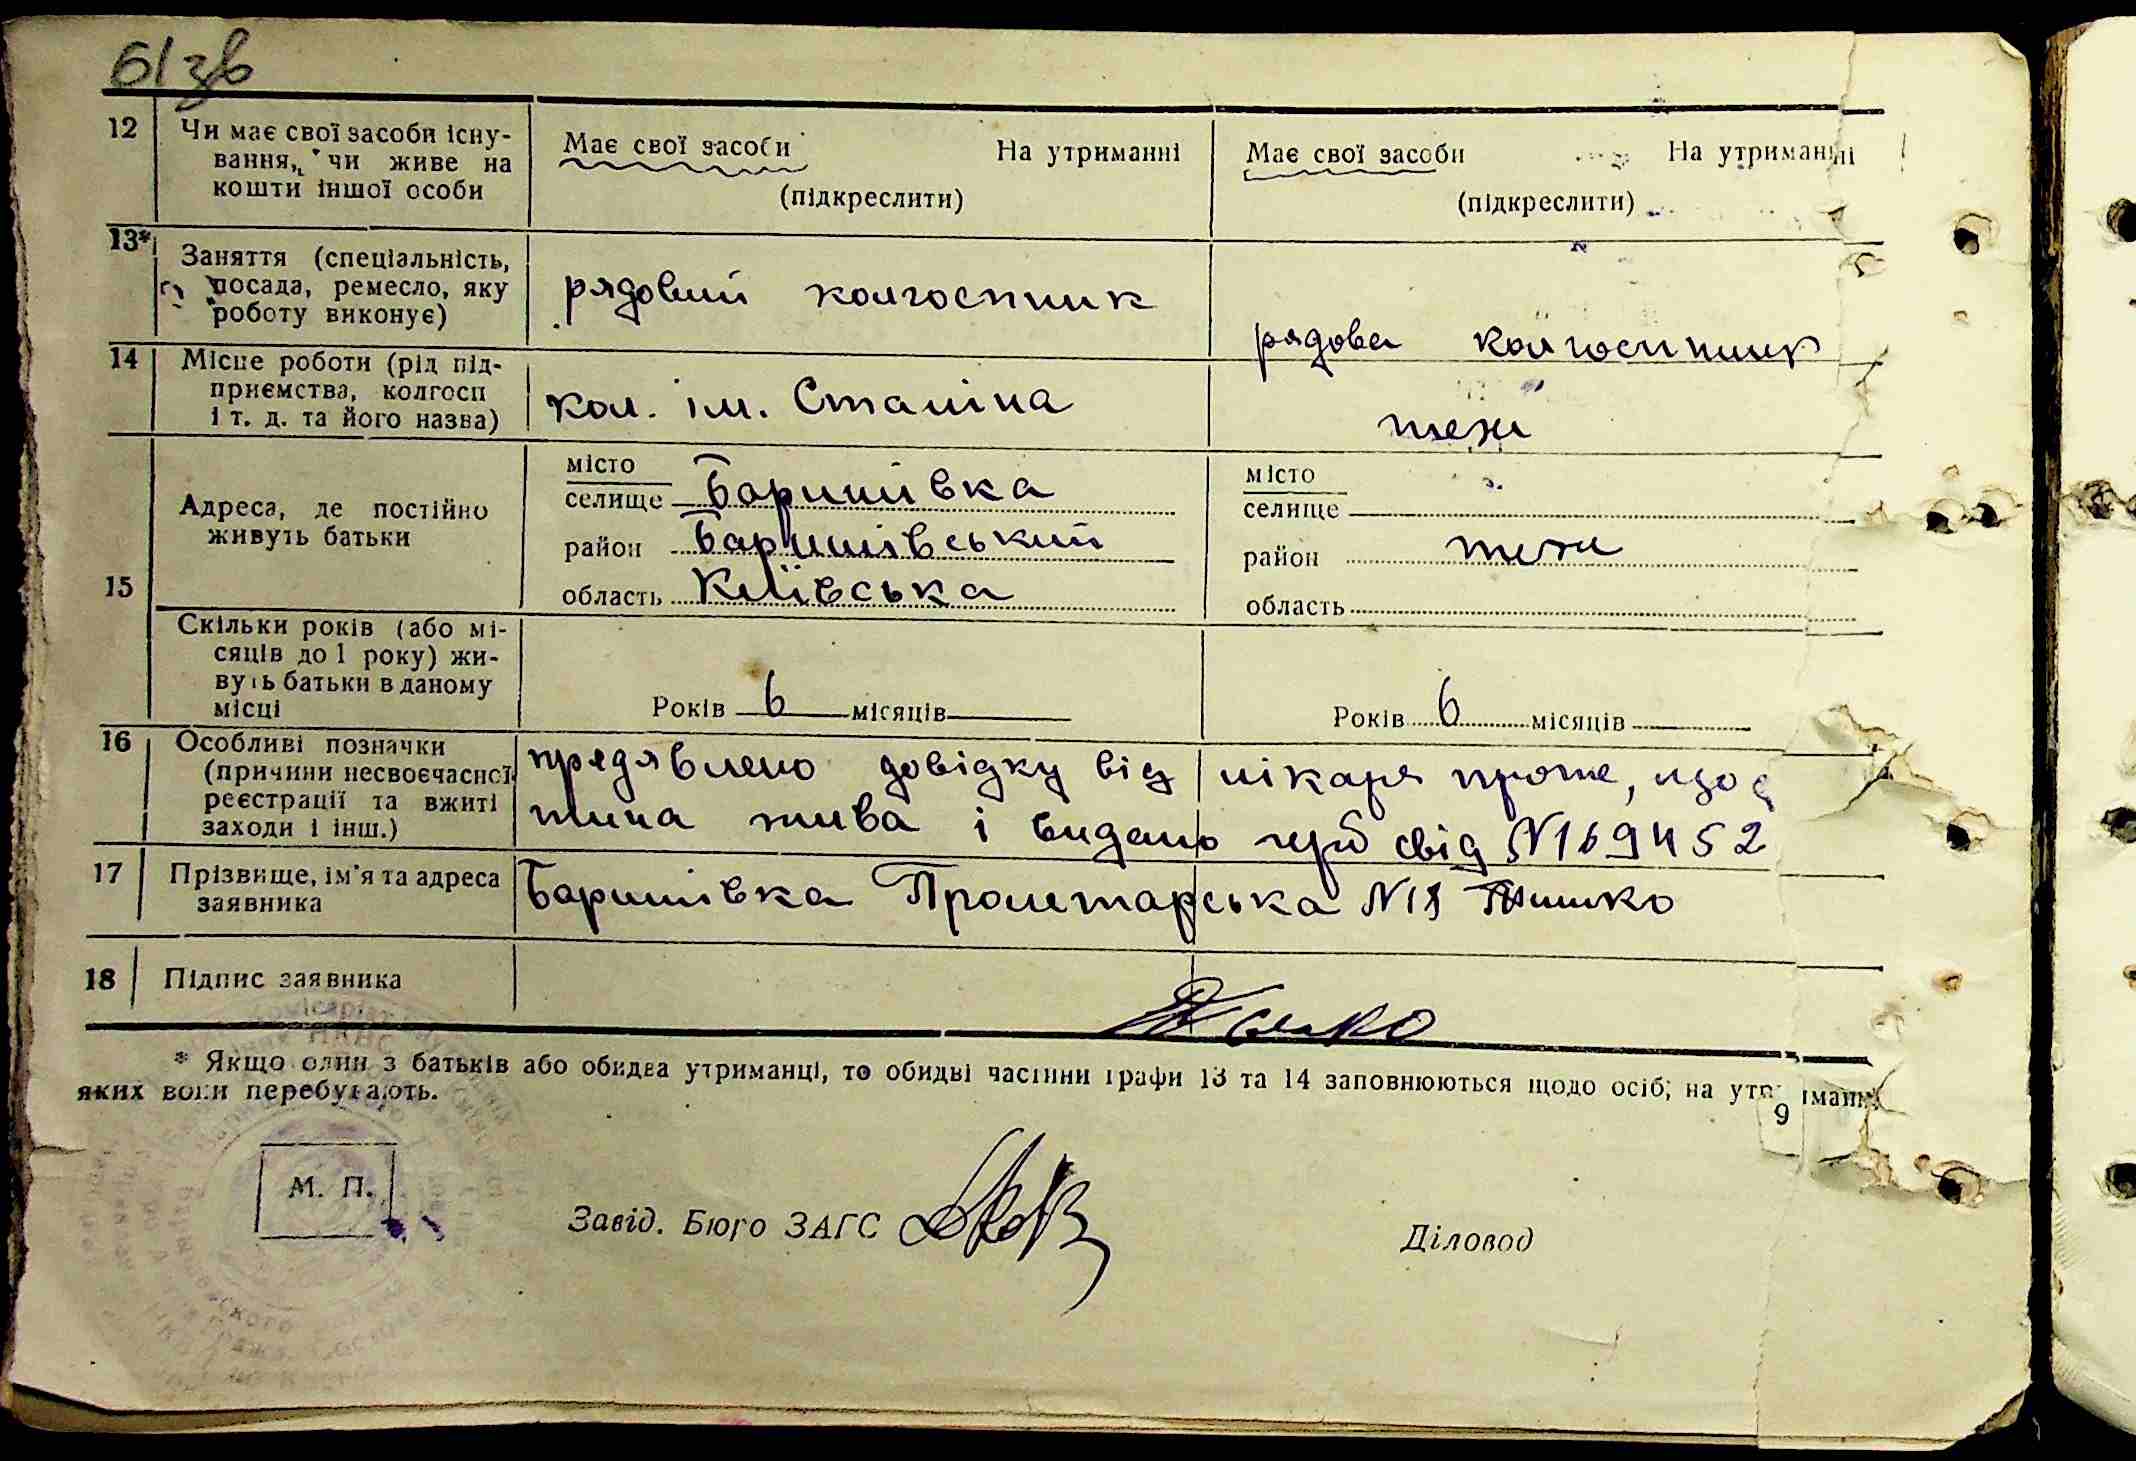 61зв
12 Чи має свої засоби існу- Має свої засоби На утриманні Має свої засоби На утриманні
вання, чи живе на
кошти іншої особи (підкреслити) (підкреслити)
13* Заняття (спеціальність,
посада, ремесло, яку рядовий колгоспник
роботу виконує) рядова колгоспник
14 Місце роботи (рід під-
приємства, колгосп кол. ім. Сталіна
і т. д. та його назва) теж
15 Адреса, де постійно
живуть батьки
місто
селище Баришівка
район Баришівський
область Київська
місто
селище
район теж
область
Скільки років (або мі-
сяців до 1 року) жи-
вуть батьки в даному
місці Років 6 місяців Років 6 місяців
16 Особливі позначки предявлено довідку від лікаря проте, що
(причини несвоєчасної
реєстрації та вжиті тина жива і видано свід N169452
заходи і інш.)
17 Прізвище, ім'я та адреса Баришівка Пролетарська N18
заявника
18 Підпис заявника
* Якщо один з батьків або обидва утриманці, то обидві частини графи 13 та 14 заповнюються щодо осіб, на утриманні
яких вони перебувають.
9
М. П.
Завід. Бюро ЗАГС Діловод